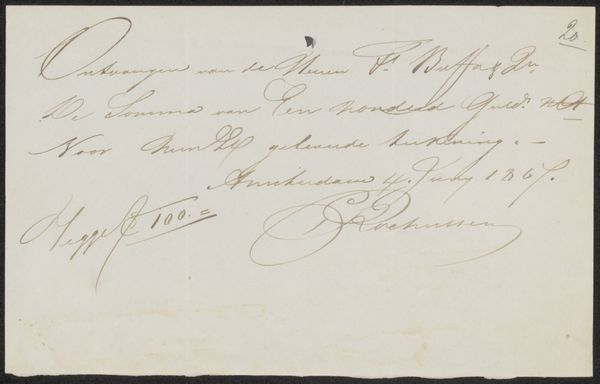 20
Ontvangen van de Heeren Fs. Buffa & Zn
De Somma van Een honderd Guld.
Voor geleverde teekening. –
Amsterdam 4 Juny 1867.
Zegge f 100.=
CRochussen